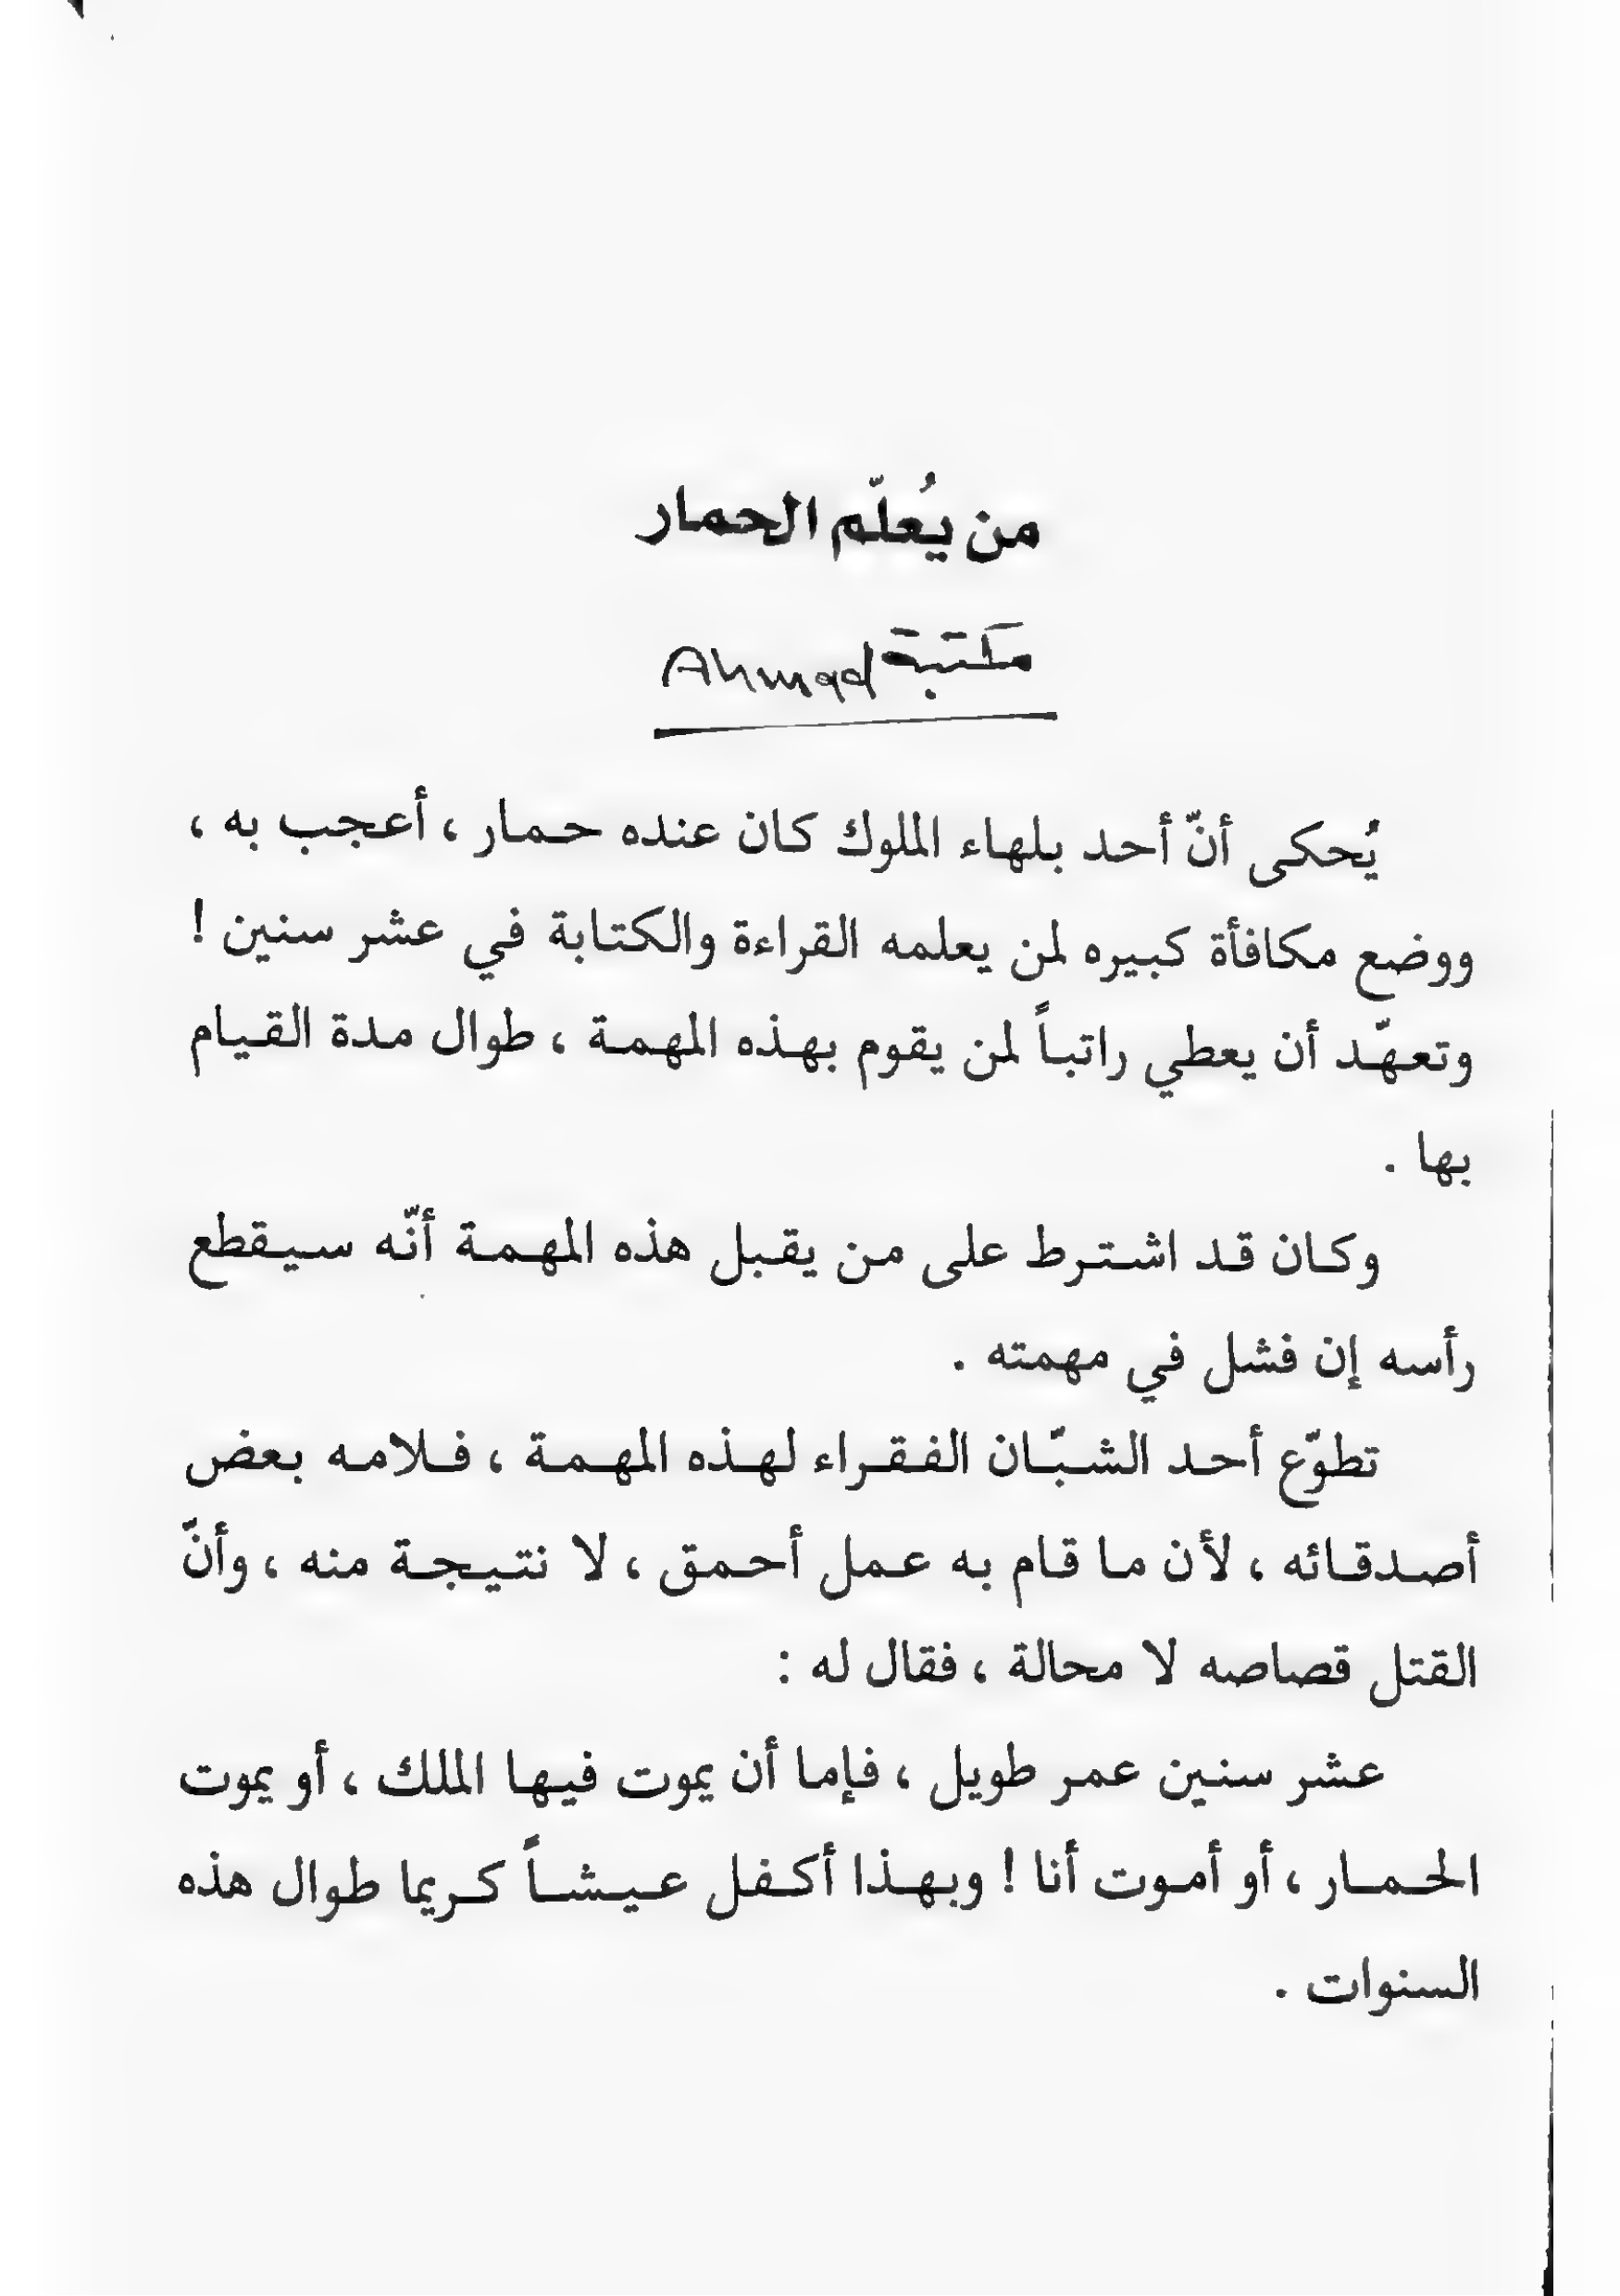 من يُعلّم الحمار
مكتبة Ahmad
يُحكى أنّ أحد بلهاء الملوك كان عنده حمار ، أعجب به ،
ووضع مكافأة كبيره لمن يعلمه القراءة والكتابة في عشر سنين !
وتعهّد أن يعطي راتباً لمن يقوم بهذه المهمة ، طوال مدة القيام
بها .
وكان قد اشترط على من يقبل هذه المهمة أنّه سيقطع
رأسه إن فشل في مهمته .
تطوّع أحد الشبّان الفقراء لهذه المهمة ، فلامه بعض
أصدقائه ، لأن ما قام به عمل أحمق ، لا نتيجة منه ، وأنّ
القتل قصاصه لا محالة ، فقال له :
عشر سنين عمر طويل ، فإما أن يموت فيها الملك ، أو يموت
الحمار ، أو أموت أنا ! وبهذا أكفل عيشاً كريما طوال هذه
السنوات .